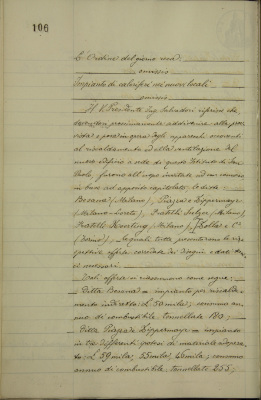 106
L'Ordine del giorno reca:
omissis
Impianto di caloriferi nei nuovi locali
omissis
Il V. Presidente Ing. Salvadori riferisce che
dovendosi prossimamente addivenire alla prov-
vista e posa in opera degli apparecchi occorrenti
al riscaldamento ed alla ventilazione del
nuovo edificio a sede di questo Istituto di San
Paolo, furono all'uopo invitate ad un concorso
in base ad apposito capitolato, le ditte:
Besana (Milano), Piazza e Zippermayr
(Milano-Loreto), Fratelli Sulzer (Milano)
Fratelli Koerting (Milano) Koller e C.
(Torino). le quali tutte presentarono le ri-
spettive offerte corredate dei disegni e dati tecni-
ci necessari.
Tali offerte si riassumono come segue:
Ditta Besana = impianto pei riscalda-
mento indiretto L. 50 mila; consumo an-
nuo di combustibile tonnellate 180;
Ditta Piazza & Zippermayr = impianto
in tre differenti ipotesi di materiale adopera-
to L. 59 mila, 53 mila, 46 mila; consumo
annuo di combustibile, tonnellate 255;